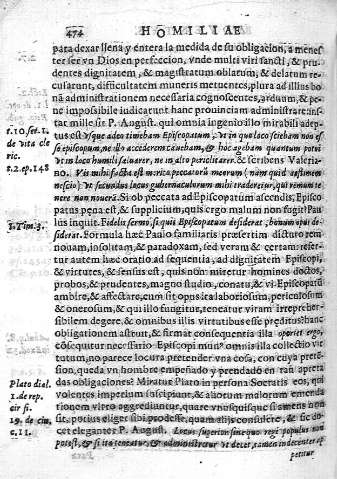 474
HOMILIAE
para dexar llena y entera la medida de su obligacion, a menes
ter ser vn Dios en perfeccion, vnde multi viri sancti, & pru-
dentes dignitatem, & magistratum oblatum, & delatum re-
cusarunt, difficultatem muneris metuentes, plura ad illius bo
nã administrationem necessaria cognoscentes, arduum, & pe-
ne impossibile iudicarunt hanc prouinciam administrare: in-
ter mille sit P. August. qui omnia ingenio illo mirabili adep-
tus est
t.10. ser. 1.
de vita cle
ric.
t.2. ep. 148
Vsque adeo timebam Episcopatum, vt in quo loco sciebam non es
se episcopum, ne illo accederem caueham, & hoc agebam quantum potui
vt in loco humili saluarer, ne in alto periclitarer. & scribens Valeria-
no.
Si ob peccata ad Episcopatum ascendis, Episco-
patus pena est, & supplicium, quis ergo malum non fugit? Pau
lus inquit. Fidelis sermo, si quis Episcopatum desiderat, bonum opus de-
siderat.
1. Tim. 3.
Formula hæc Paulo familiaris præsertim dictum re-
nouam, insolitam, & paradoxam, sed veram & certam refer-
tur autem hæc oratio ad sequentia, ad dignitatem Episcopi,
& virtutes, & sensus est, quis non miretur homines doctos,
probos, & prudentes, magno studio, conatu, & vi Episcopatũ
ambire, & affectare, cum sit opus ita laboriosum, periculosum
& onerosum, & qui illo fungitur, teneatur viram irreprehen-
sibilem degere, & omnibus illis virtutibus esse præditus: hanc
obligationem astruit, & firmat consequentia illa oportet ergo,
cõsequitur necessario Episcopi munꝰ omnis illa collectio vir
tutum, no parece locura pretender vna cosa, con cuya prete-
sion, queda vn hombre empeñado y prendado en tan apreta
das obligaciones? Miratur Plato in persona Socratis eos, qui
Plato dial.
1. de rep.
cir fi.
19. de ciu.
c. 11.
volentes imperium suscipiunt, & aliorum malorum emenda
tionem vltro aggrediuntur, quare vnusquisque si omnis non
sit, potius eliget sibi prodesse, quam aliis consulere, & sic do-
cet eleganter P. August. Locus superior sine quo regi populus non
potest, & si ita teneatur, & administretur vt decet, tamen indecenter ap
petitur